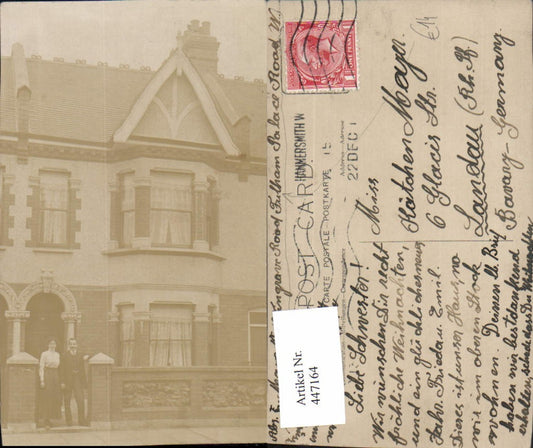 £14
ONE PENNY
HAMMERSMITH W
22 DEC 1
POST CARD.
CARTE POSTALE POSTKARTE
Address - Adresse
Miss
Kätchen Mayer
6 Glacis Str.
Landau (Rh. Pf)
Bavaria Germany.
Lieb. Schwester!
Wir wünschen Dir recht
fröhliche Weihnachten,
und ein glückl.
Jahr. Frieda u. Emil.
Dieses ist unser Haus wo
wir im oberen Stock
wohnen. Deinen lb. Brief
haben wir bestdankend
erhalten,
Road Fulham Palace Road, W.
Artikel Nr.
447164